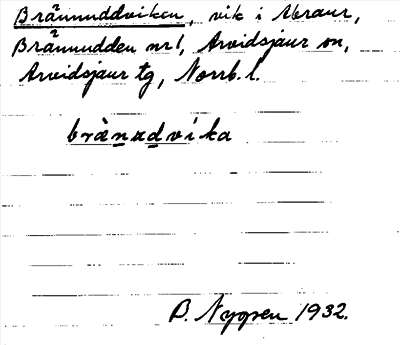 Brännuddviken, vik i Abraur,
Brännudden nr 1, Arvidsjaur sn,
Arvidsjaur tg, Norrb. l.
brànudvika
B. Nygren 1932.